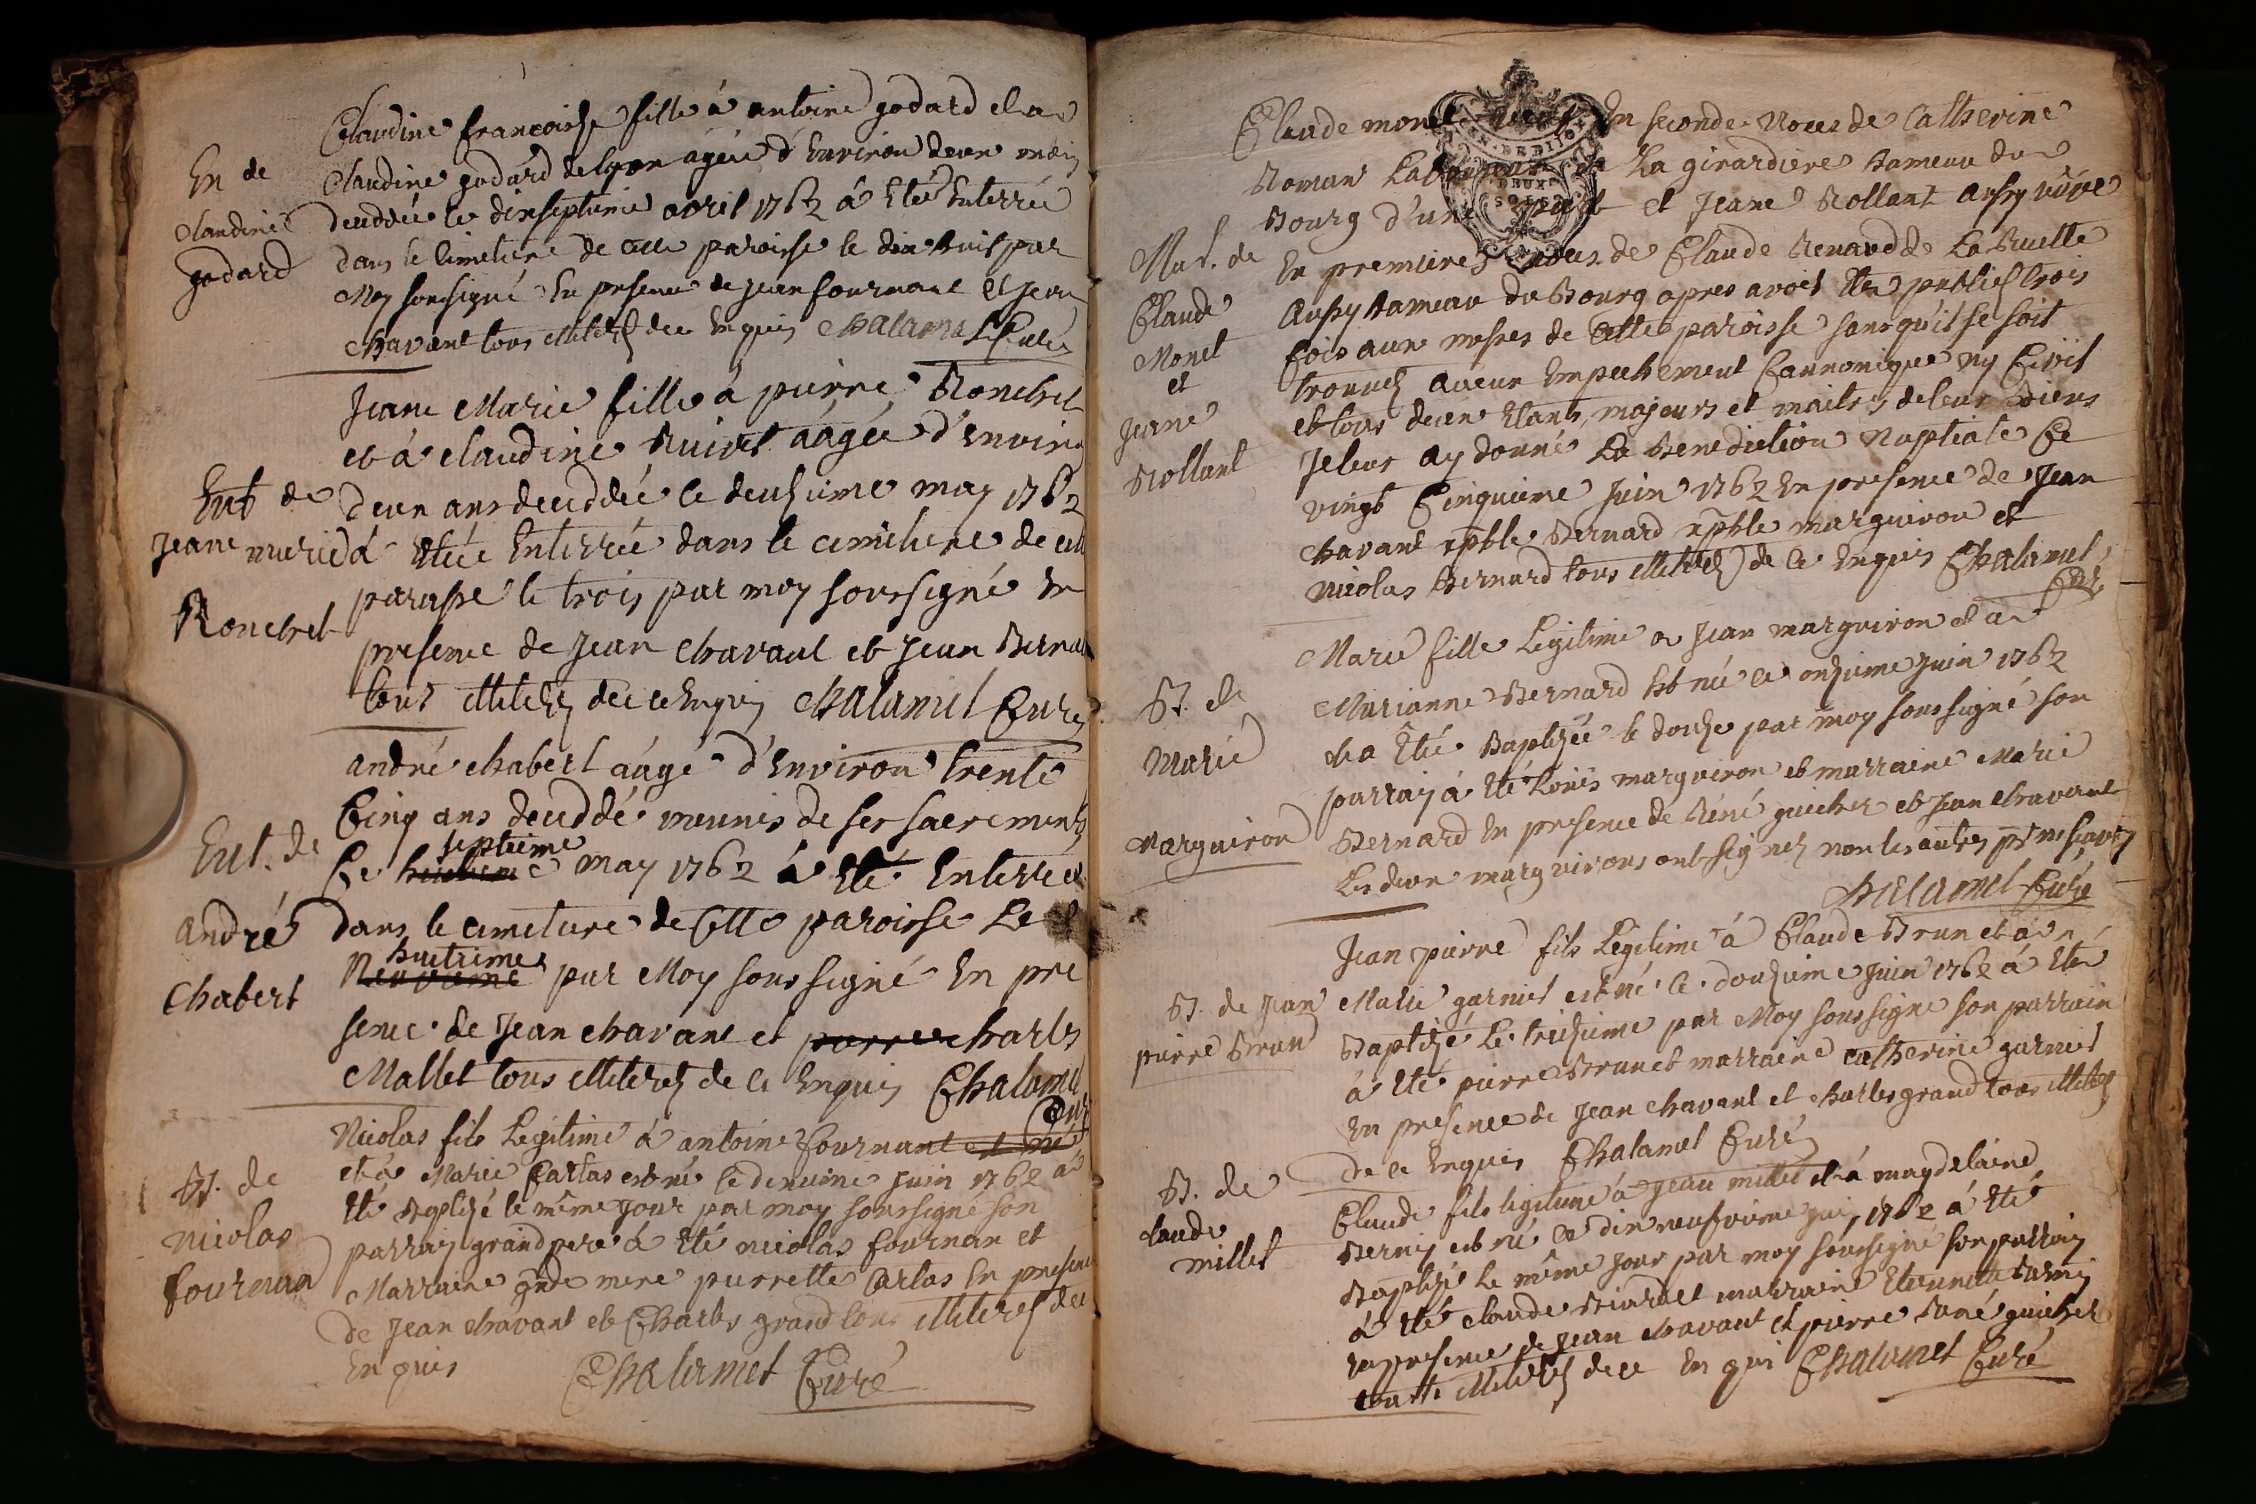 En de
Claudine
godard
Claudine francoise fille à antoine godard et a
Claudine godard de lyon agée d'Environ deux mois
deceddée le dixseptieme avril 1762 à Eté Enterrée
dans le Cimetiere de cette paroisse le dix huit par
Moy soussigné En presence de jean fournant et jean
chavant tous illiterés de ce Enquis Chalamel Curé
Ent de
jeane marie
Ronchet
Jeane Marie fille à pierre Ronchet
et à claudine Ruivet aàgée d'Environ
deux ans deceddée le deuxieme may 1762
à Etée Enterrée dans le cimetiere de cette
paroisse le trois par moy soussigné En
presence de Jean chavant et Jean Berna
tous illiterés de ce Enquis Chalamel Curé
Ent. de
andré
Chabert
andré chabert aàgé d'Environ trente
Cinq ans deceddé meunis de ses sacrements
septieme
Ce huitieme may 1762 à Eté Enterré
dans le cimetiere de Cette paroisse Le
huitieme
Neuvieme par Moy soussigné En pre
sence de Jean chavant et pierre charles
Mallet tous illiterés de ce Enquis Chalamel
Curé
B. de
nicolas
fournan
Nicolas fils Legitime à antoine fournant et né
et à Marie Carlas est né le deuxime juin 1762 à
Eté Baptizé le même jour par moy soussigné son
parrain grand pere à Eté nicolas fournan et
Marraine grde mere pierrette Carlas En presence
de Jean chavant et Charles grand tous illiterés de ce
Enquis Chalamel Curé
Mar. de
Claude
Monet
et
Jeane
Rollant
Claude monet En seconde Noces de Catherine
Roman Laboureur de La girardiere hameau du
Bourg d'une part et Jeane Rollant aussy veuve
En premieres Noces de Claude Renard de La Ruelle
Aussy hameau du Bourg apres avoir Eté publiés trois
fois aux messes de cette paroisse sans qu'il se soit
trouvés aucun Empechement Cannonique ny Civil
et tous deux Etants majeurs et maitres de leur Biens
Je leur ay donné La Benediction Nuptiale Ce
vingt Cinquieme Juin 1762 En presence de Jean
chavant Bernard marguiron et
nicolas Bernard tous illiterés de ce Enquis Chalamel
Curé
B. de
Marie
Marguiron
Marie fille Legitime a Jean marguiron et a
Marianne Bernard Est née ce onzieme juin 1762
et a Eté Baptizée le douze par moy soussigné son
parrain à Eté Loüis marguiron et marraine Marie
Bernard En presence de Réné guicher et Jean chavant
Les deux marguirons ont signés non les autres
Chalamel Curé
B. de Jean
pierre Brun
Jean pierre fils Legitime à Claude Brun et à
Marie garnier est né le douzieme juin 1762 à Eté
Baptizé Le treizieme par Moy soussigné son parrain
à Eté pierre Brun et marraine catherine garnier
En presence de Jean chavant et charles grand tous illiterés
de ce Enquis Chalamel Curé
B. de
claude
millet
Claude fils legitime à jean millet et à magdelaine
Berny est né ce dix neufvieme juin 1762 à Eté
Baptizé Le même jour par moy soussigné son parrain
à Eté claude et marraine Etiennette Berny
En presence de jean chavant et pierre Réné guicher
illiterés de ce En quis Chalamet Curé
DEUX
SOLS